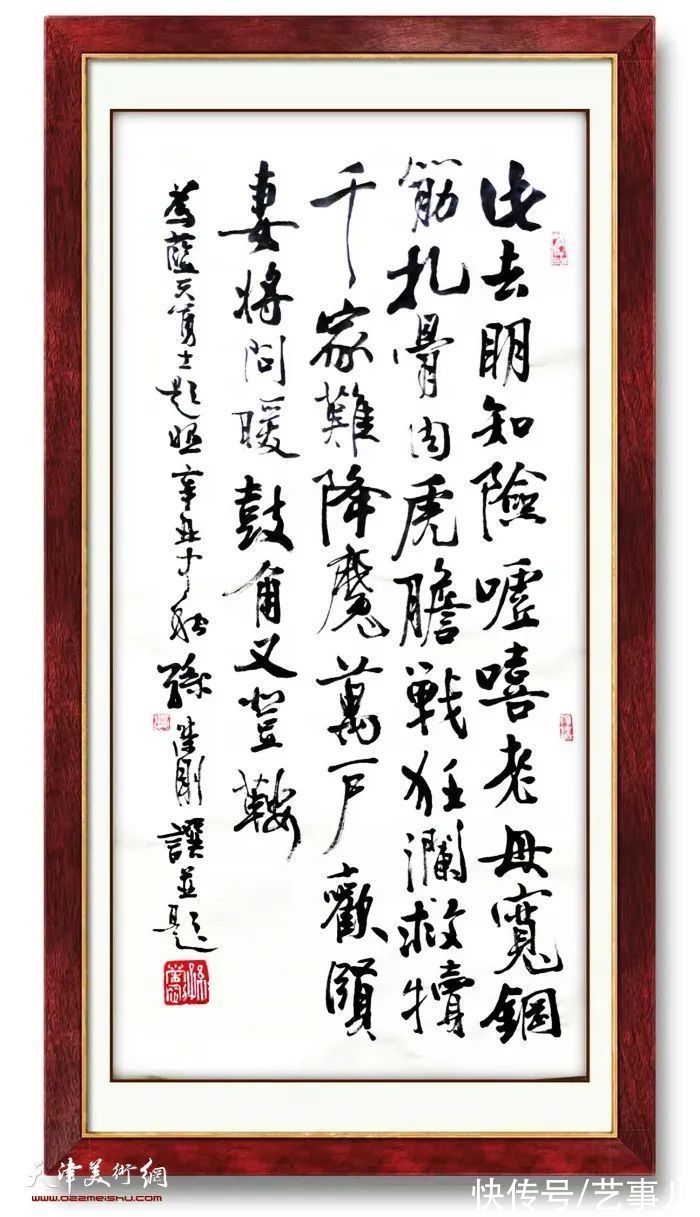 此去明知險嘘嘻老母寬鋼
筋扎骨肉虎膽戰狂瀾救犢
千家難降魔萬户歡頤
妻將問暖鼓角又登鞍
為藍天勇士題照辛丑中秋孫 剛譔並題
天津美術網
www.022meishu.com
快传号/艺事儿